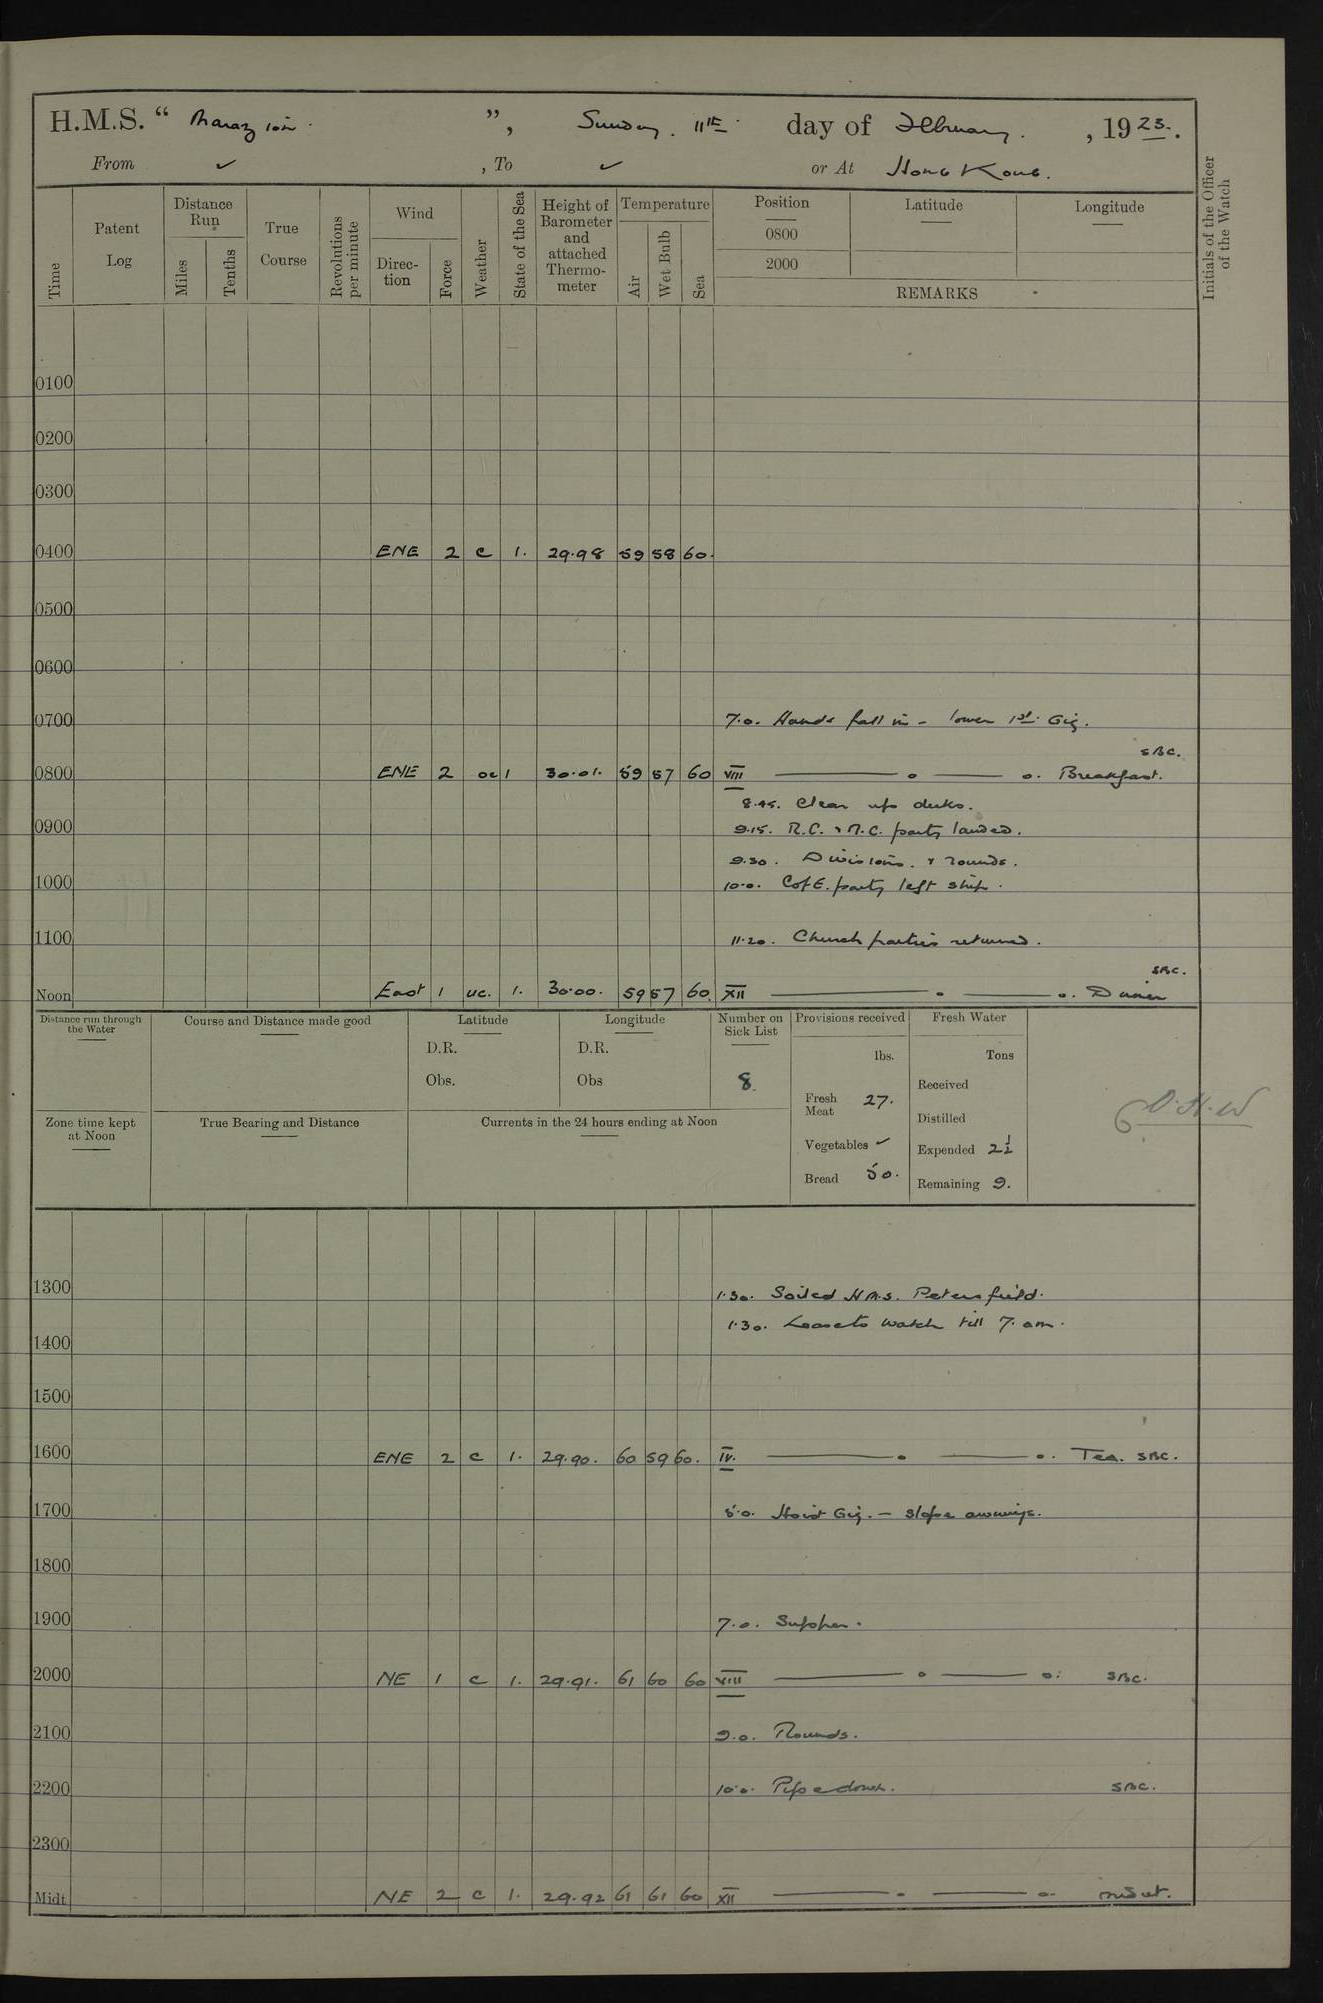 H.M.S. “ Marazion. ”, Sunday. 11th day of February. , 1923.
From ✓ , To ✓ or At Hong Kong.
Time
Patent Log
Distance Run
Miles
Tenths
True Course
Revolutions per minute
Wind
Direc-tion
Force
Weather
State of the Sea
Height of Barometer and attached Thermo-meter
Temperature
Air
Wet Bulb
Sea
Position
0800
2000
Latitude
Longitude
REMARKS
Initials of the Officer of the Watch
0100
0200
0300
0400 ENE 2 c 1. 29.98 59 58 60.
0500
0600
0700 7.0. Hands fall in - lower 1st. Gig.
SBC.
0800 ENE 2 oc 1 30.01. 59 57 60 VIII Breakfast.
8.45. Clear up decks.
0900 9.15. R.C. & N.C. party landed.
9.30. Divisions. & rounds.
1000 10.0. C of E. party left ship.
1100 11.20. Church parties returned.
SBC.
Noon East 1 uc. 1. 30.00. 59 57 60. XII Dinner
Distance run through the Water
Course and Distance made good
Latitude
D.R.
Obs.
Longitude
D.R.
Obs
Number on Sick List
8.
Provisions received
lbs.
Fresh Meat 27.
Vegetables ✓
Bread 50.
Fresh Water
Tons
Received
Distilled
Expended 2½
Remaining 9.
Zone time kept at Noon
True Bearing and Distance
Currents in the 24 hours ending at Noon
1300 1.30. Sailed H.M.S. Petersfield.
1.30. Leave to watch till 7. am.
1400
1500
1600 ENE 2 c 1. 29.90. 60 59 60. IV. Tea. SBC.
1700 5.0. Hoist Gig. - slope awnings.
1800
1900 7.0. Supper.
2000 NE 1 c 1. 29.91. 61 60 60 VIII SBC.
2100 9.0. Rounds.
2200 10.0. Pipe down. SBC.
2300
Midt NE 2 c 1. 29.92 61 61 60 XII